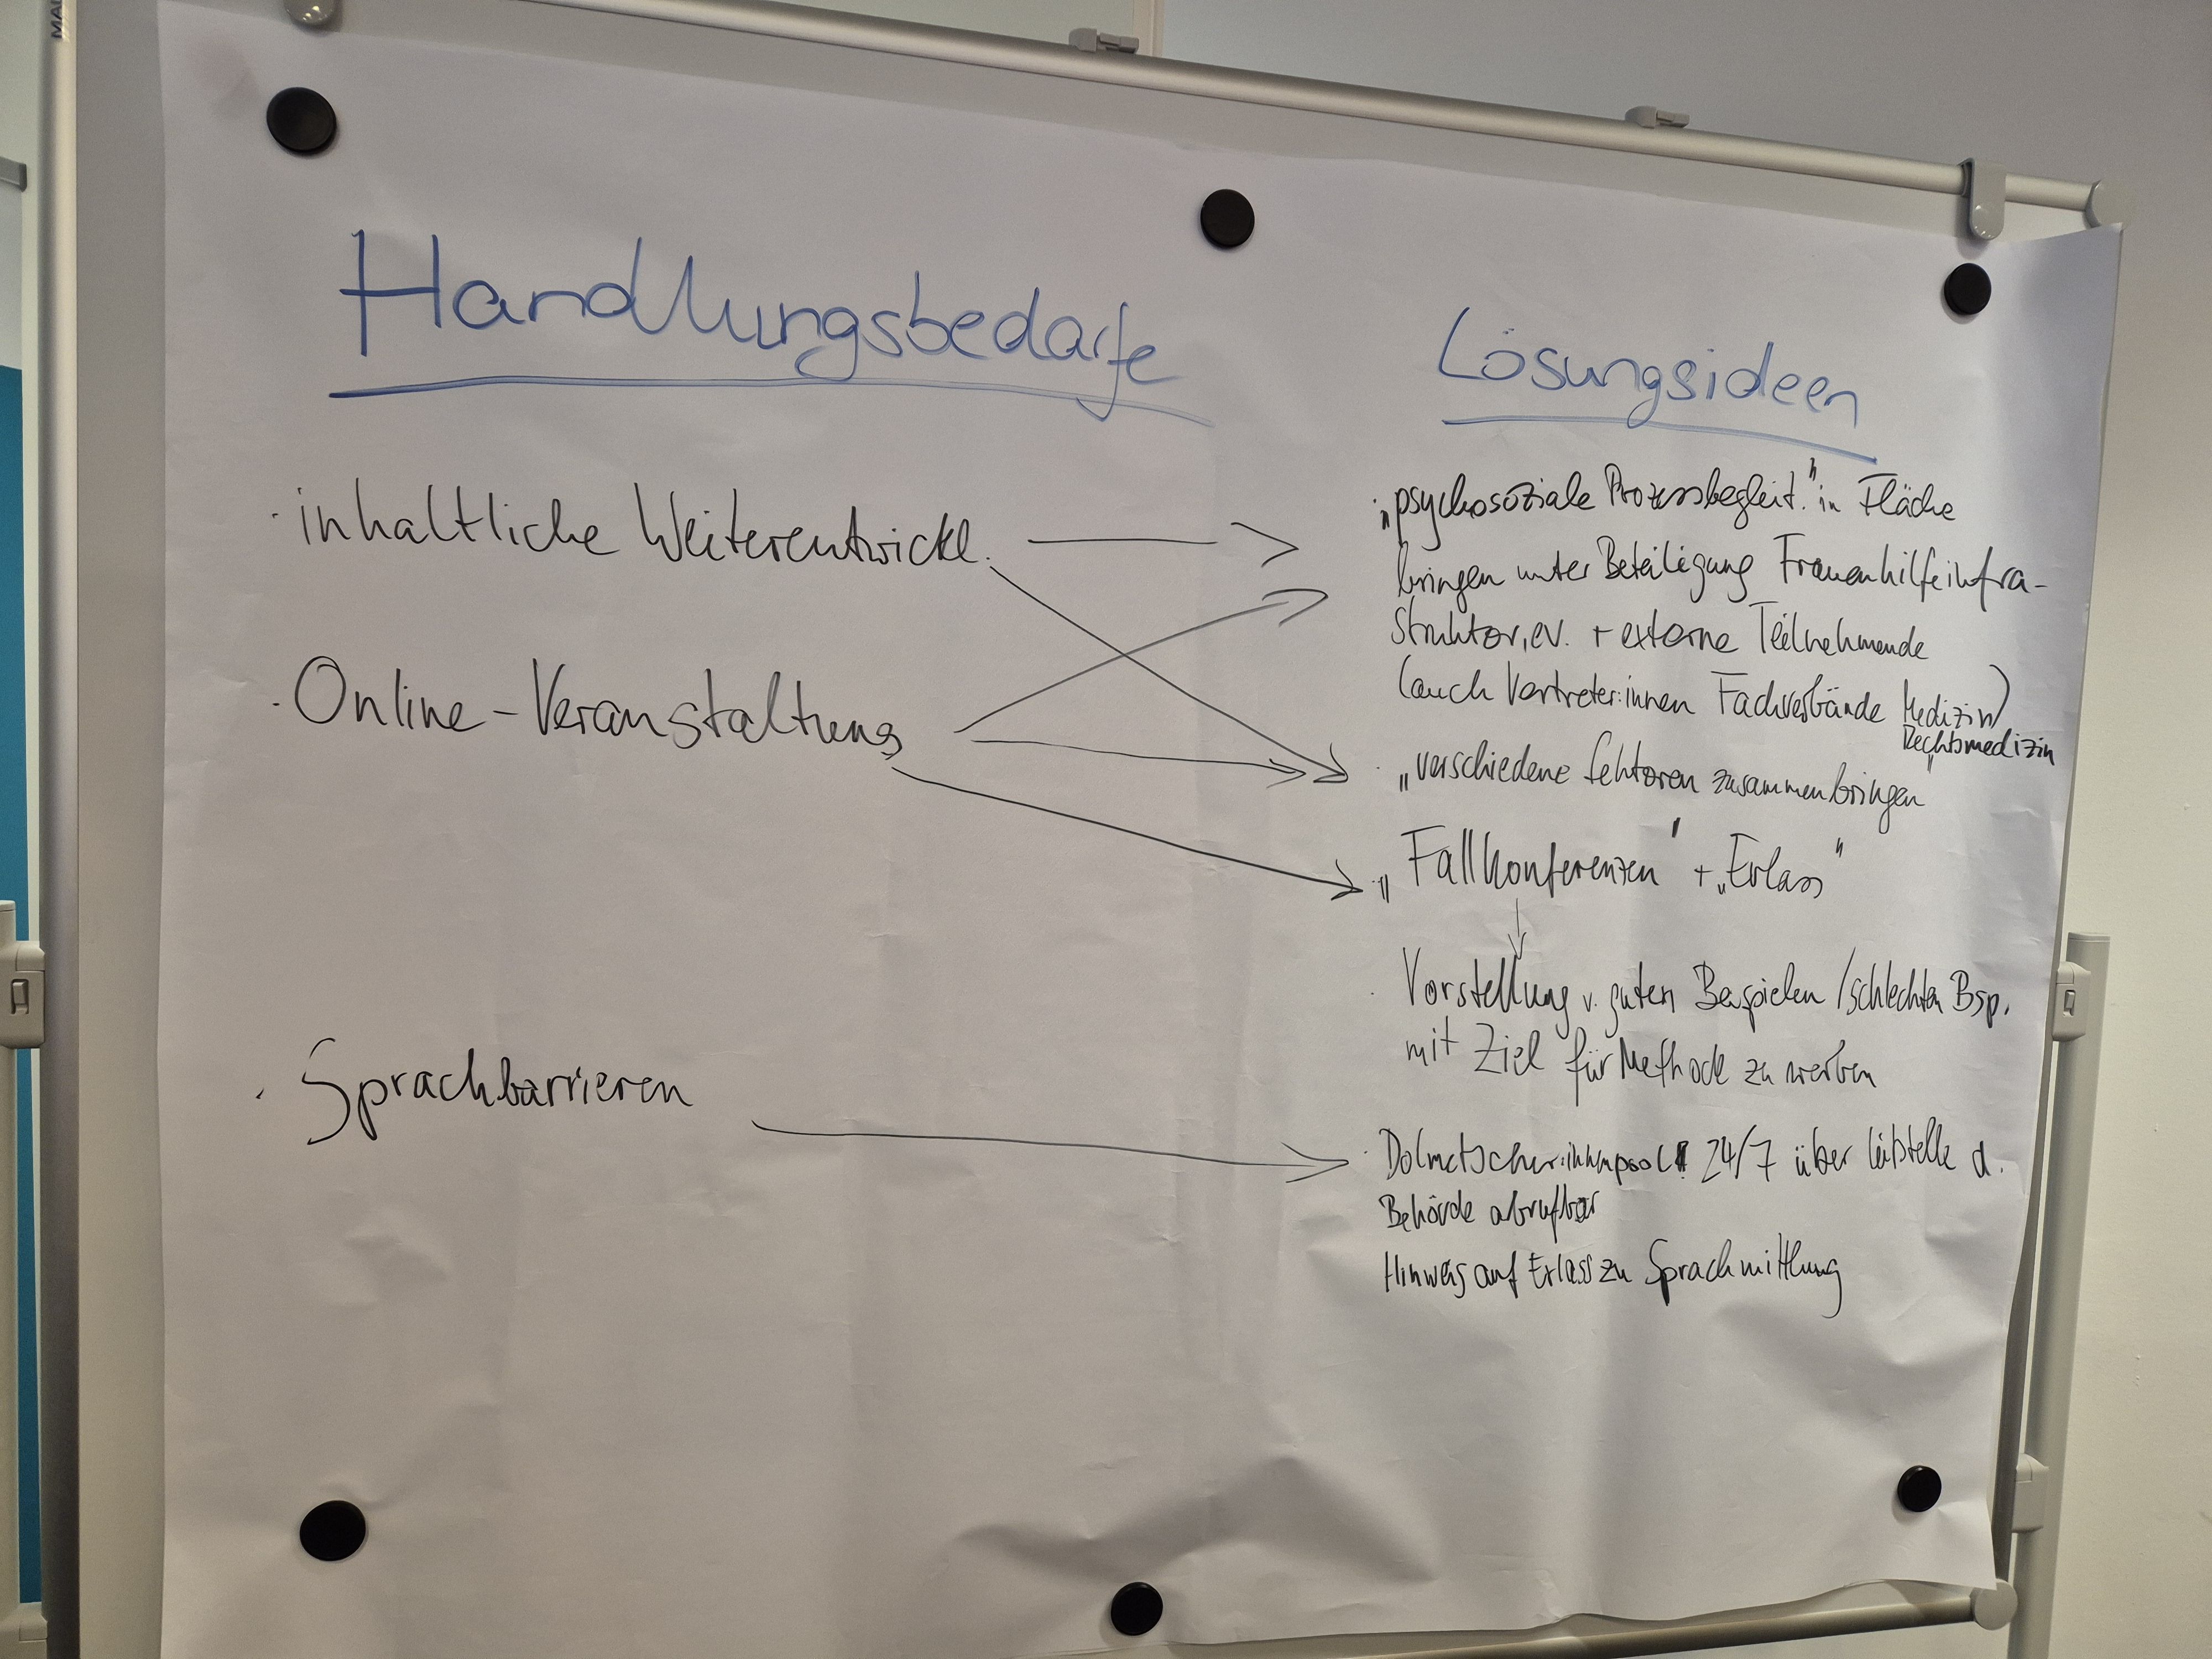 Handlungsbedarfe
· inhaltliche Weiterentwickl.
· Online-Veranstaltung
· Sprachbarrieren
Lösungsideen
„psychosoziale Prozessbegleit." in Fläche
bringen unter Beteiligung Frauenhilfeinfra-
struktur, ev. + externe Teilnehmende
(auch Vertreter:innen Fachverbände Medizin)
Rechtsmedizin
· „verschiedene Sektoren zusammenbringen"
„Fallkonferenzen" + „Erlass"
· Vorstellung v. guten Beispielen / schlechten Bsp.
mit Ziel für Methode zu werben
· Dolmetscher:innenpool 24/7 über Leitstelle d.
Behörde abrufbar
Hinweis auf Erlass zu Sprachmittlung